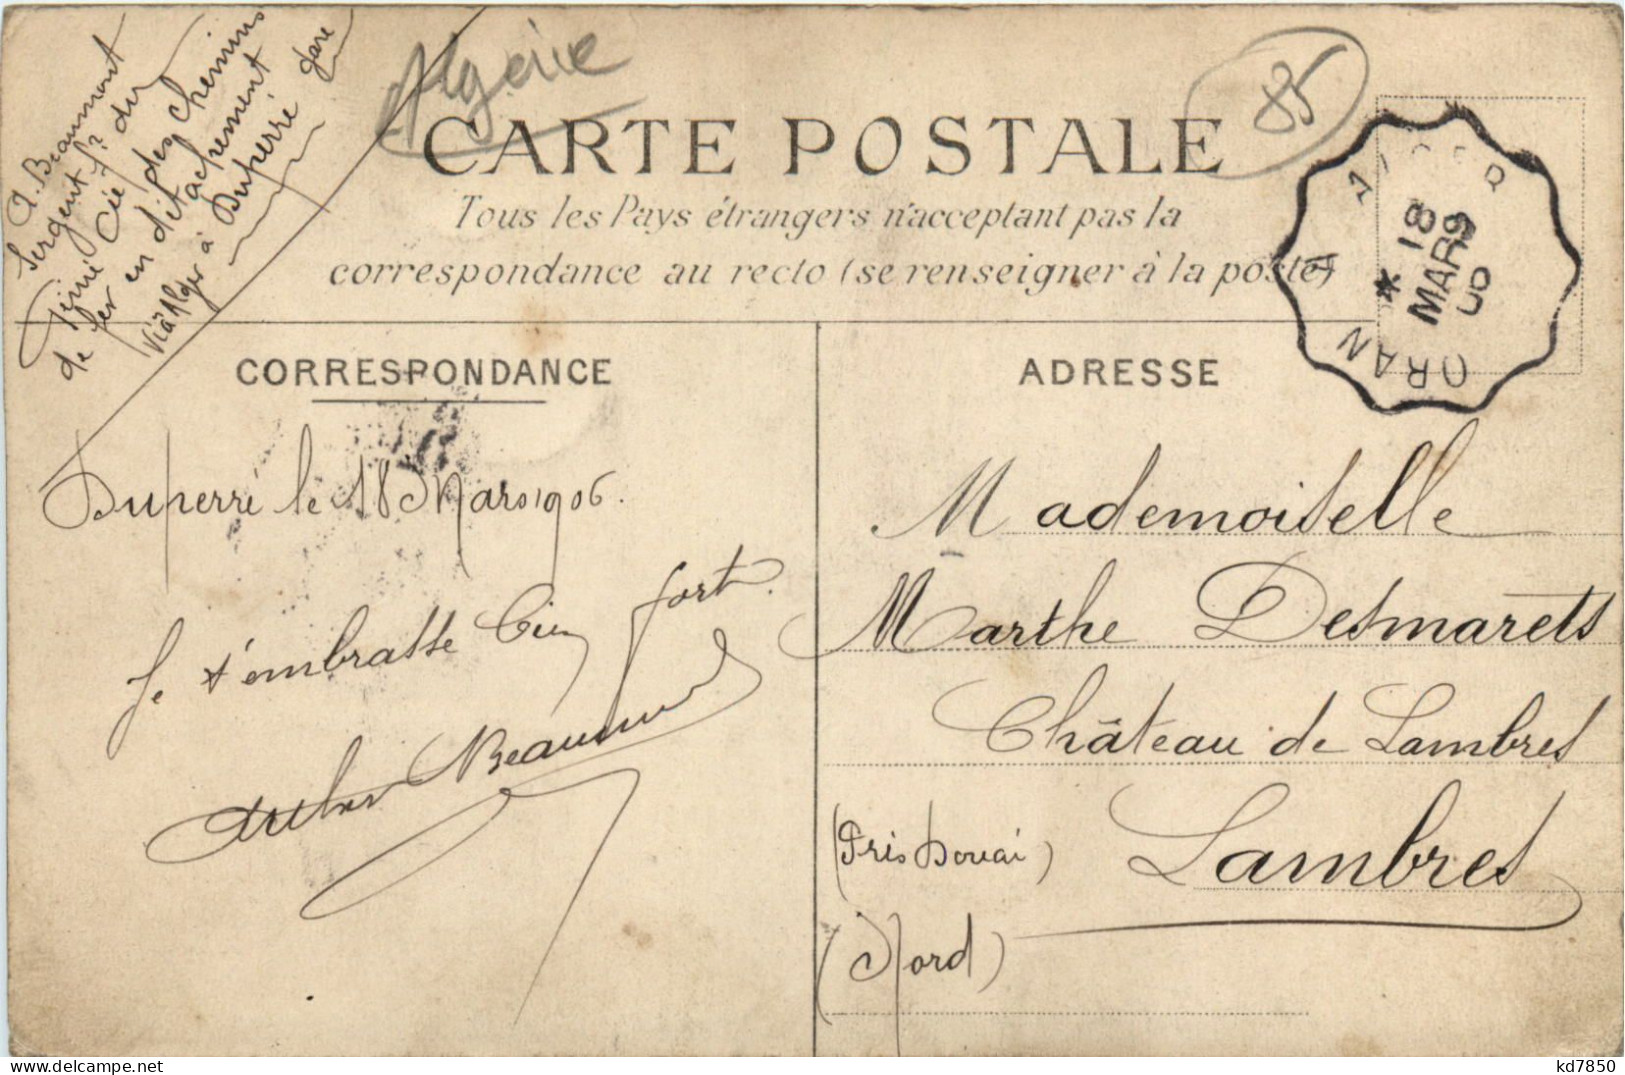 A. Beaumont
Sergent f? du
Génie Cie des chemins
de fer en détachement
Via Alger à Duperré gare
Algérie
85
CARTE POSTALE
Tous les Pays étrangers n'acceptant pas la
correspondance au recto (se renseigner à la poste)
ALGER A ORAN
* 18
MARS
06
CORRESPONDANCE
ADRESSE
Duperré le 18 Mars 1906.
Je t'embrasse bien fort.
Arthur Beaumont
Mademoiselle
Marthe Desmarets
Château de Lambres
(Près Douai) Lambres
(Nord)
kd7850